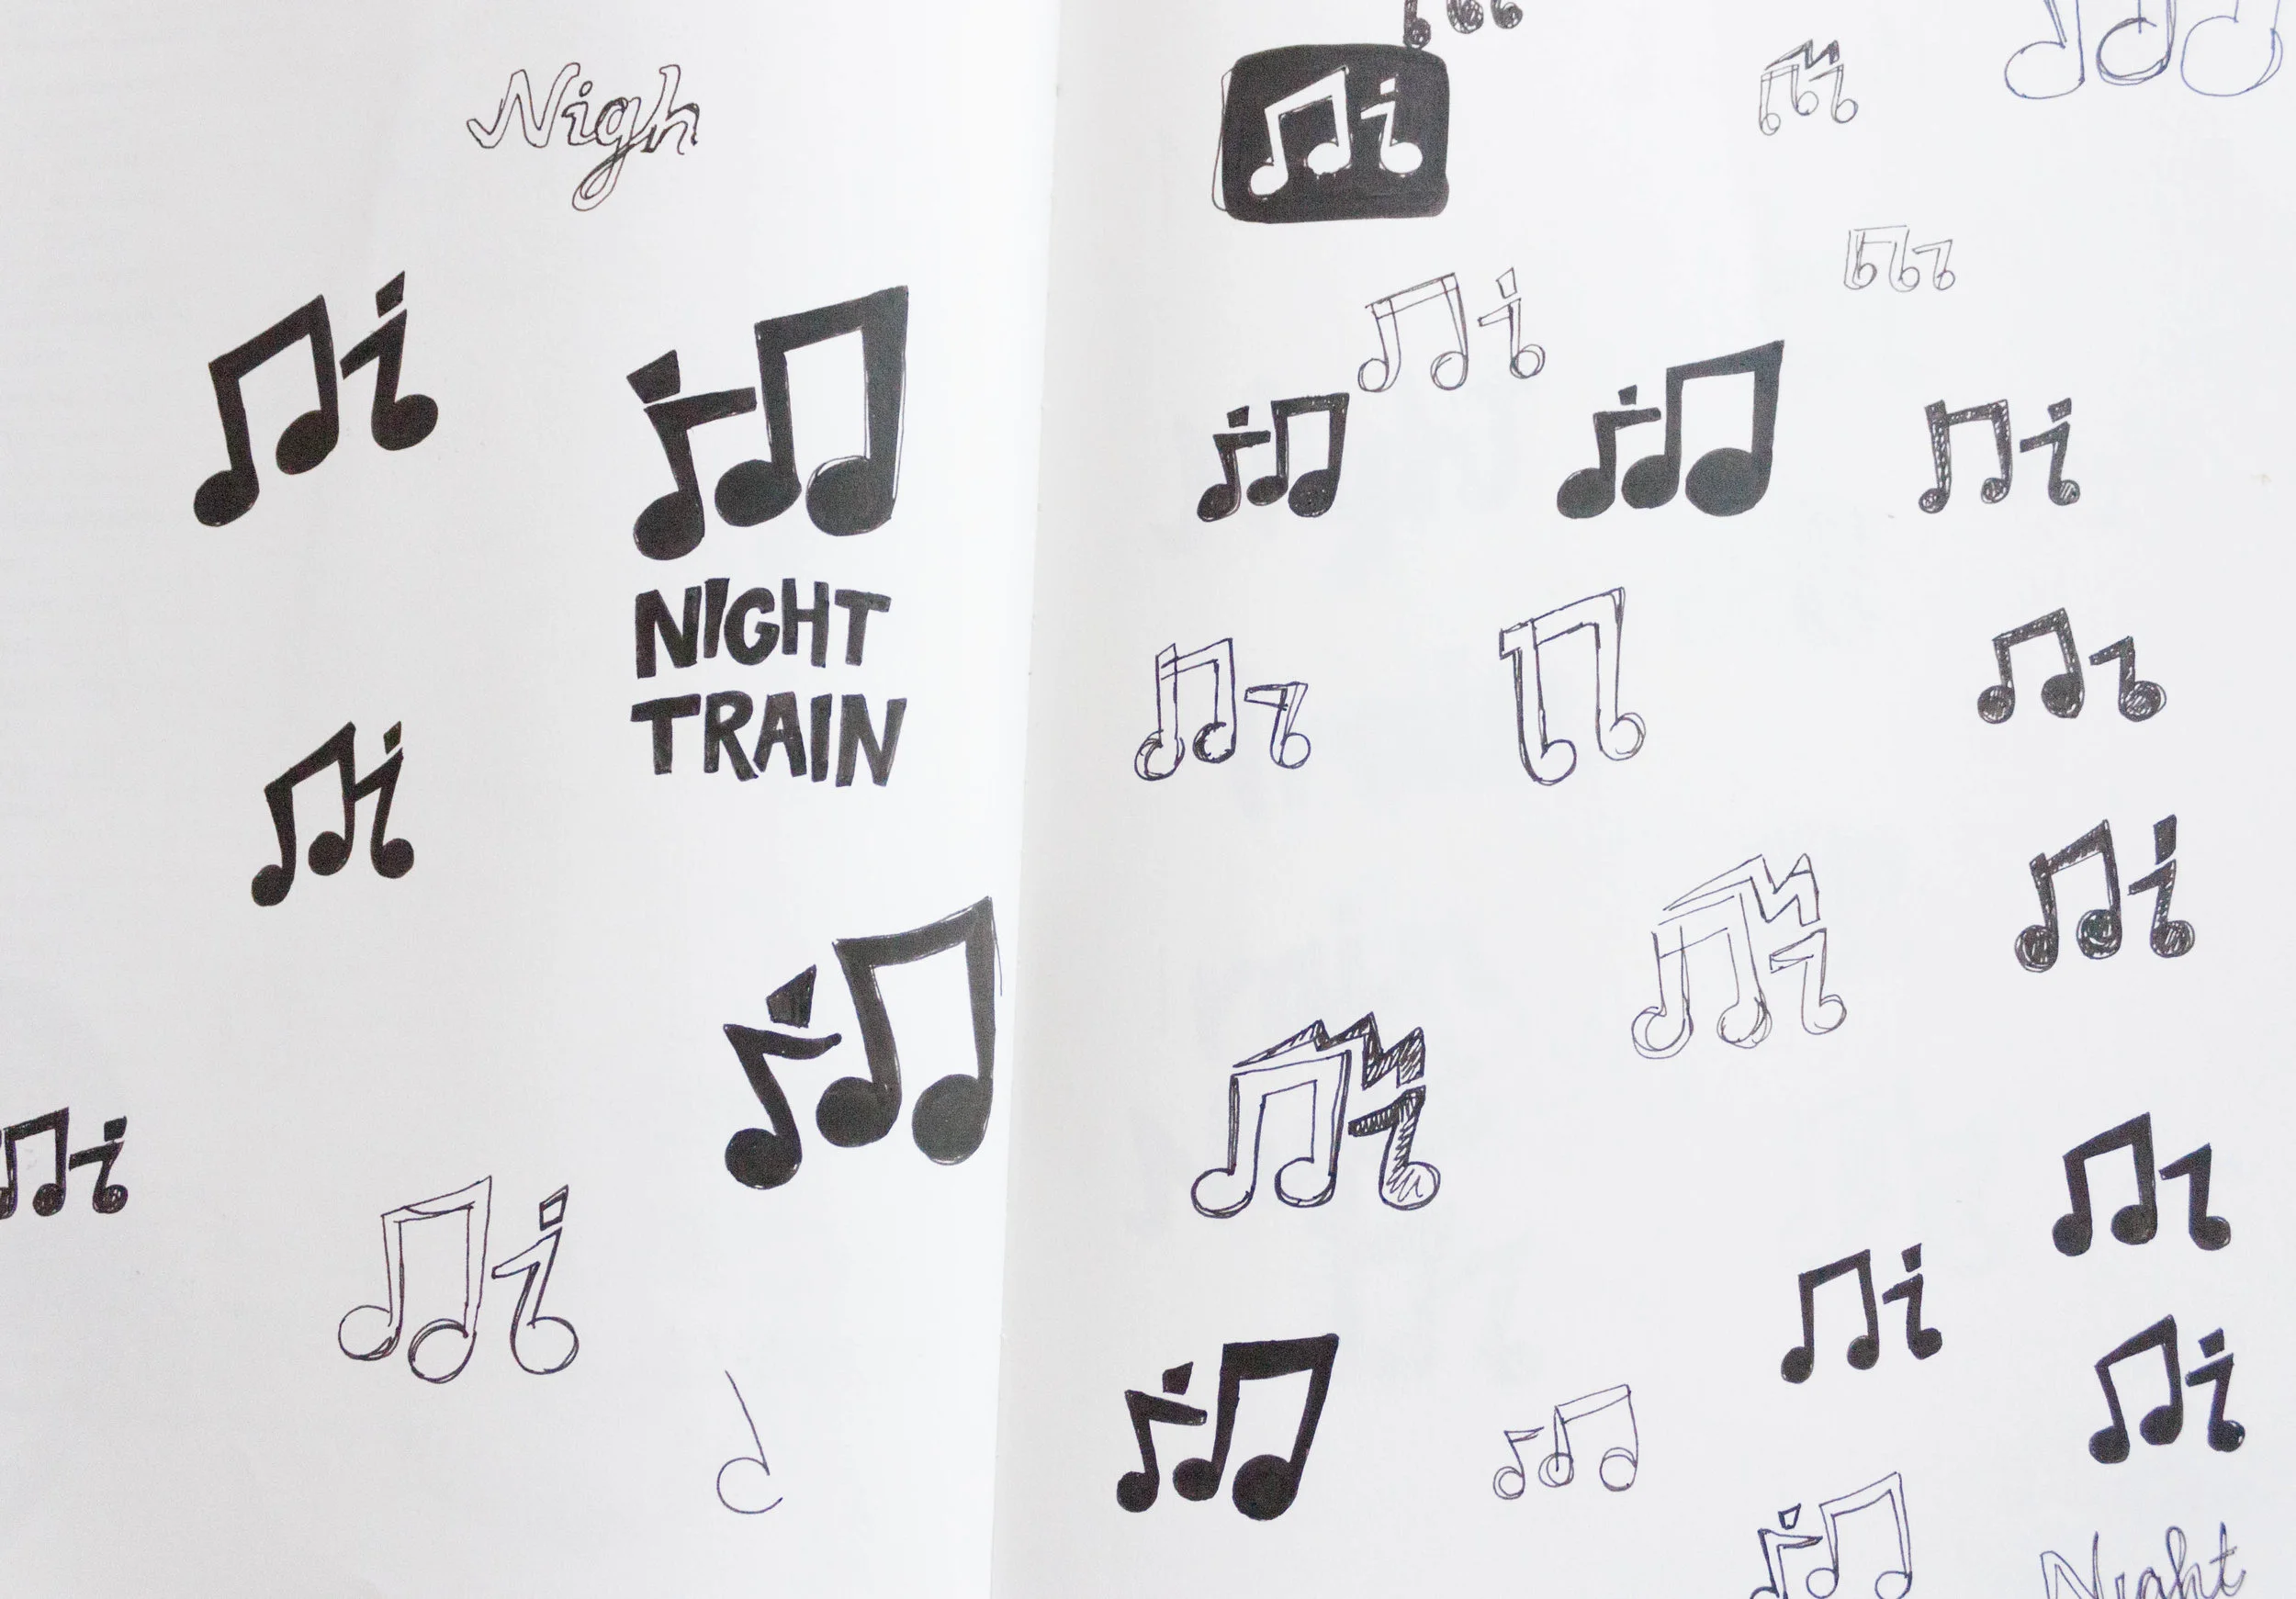 Nigh
NIGHT
TRAIN
Night